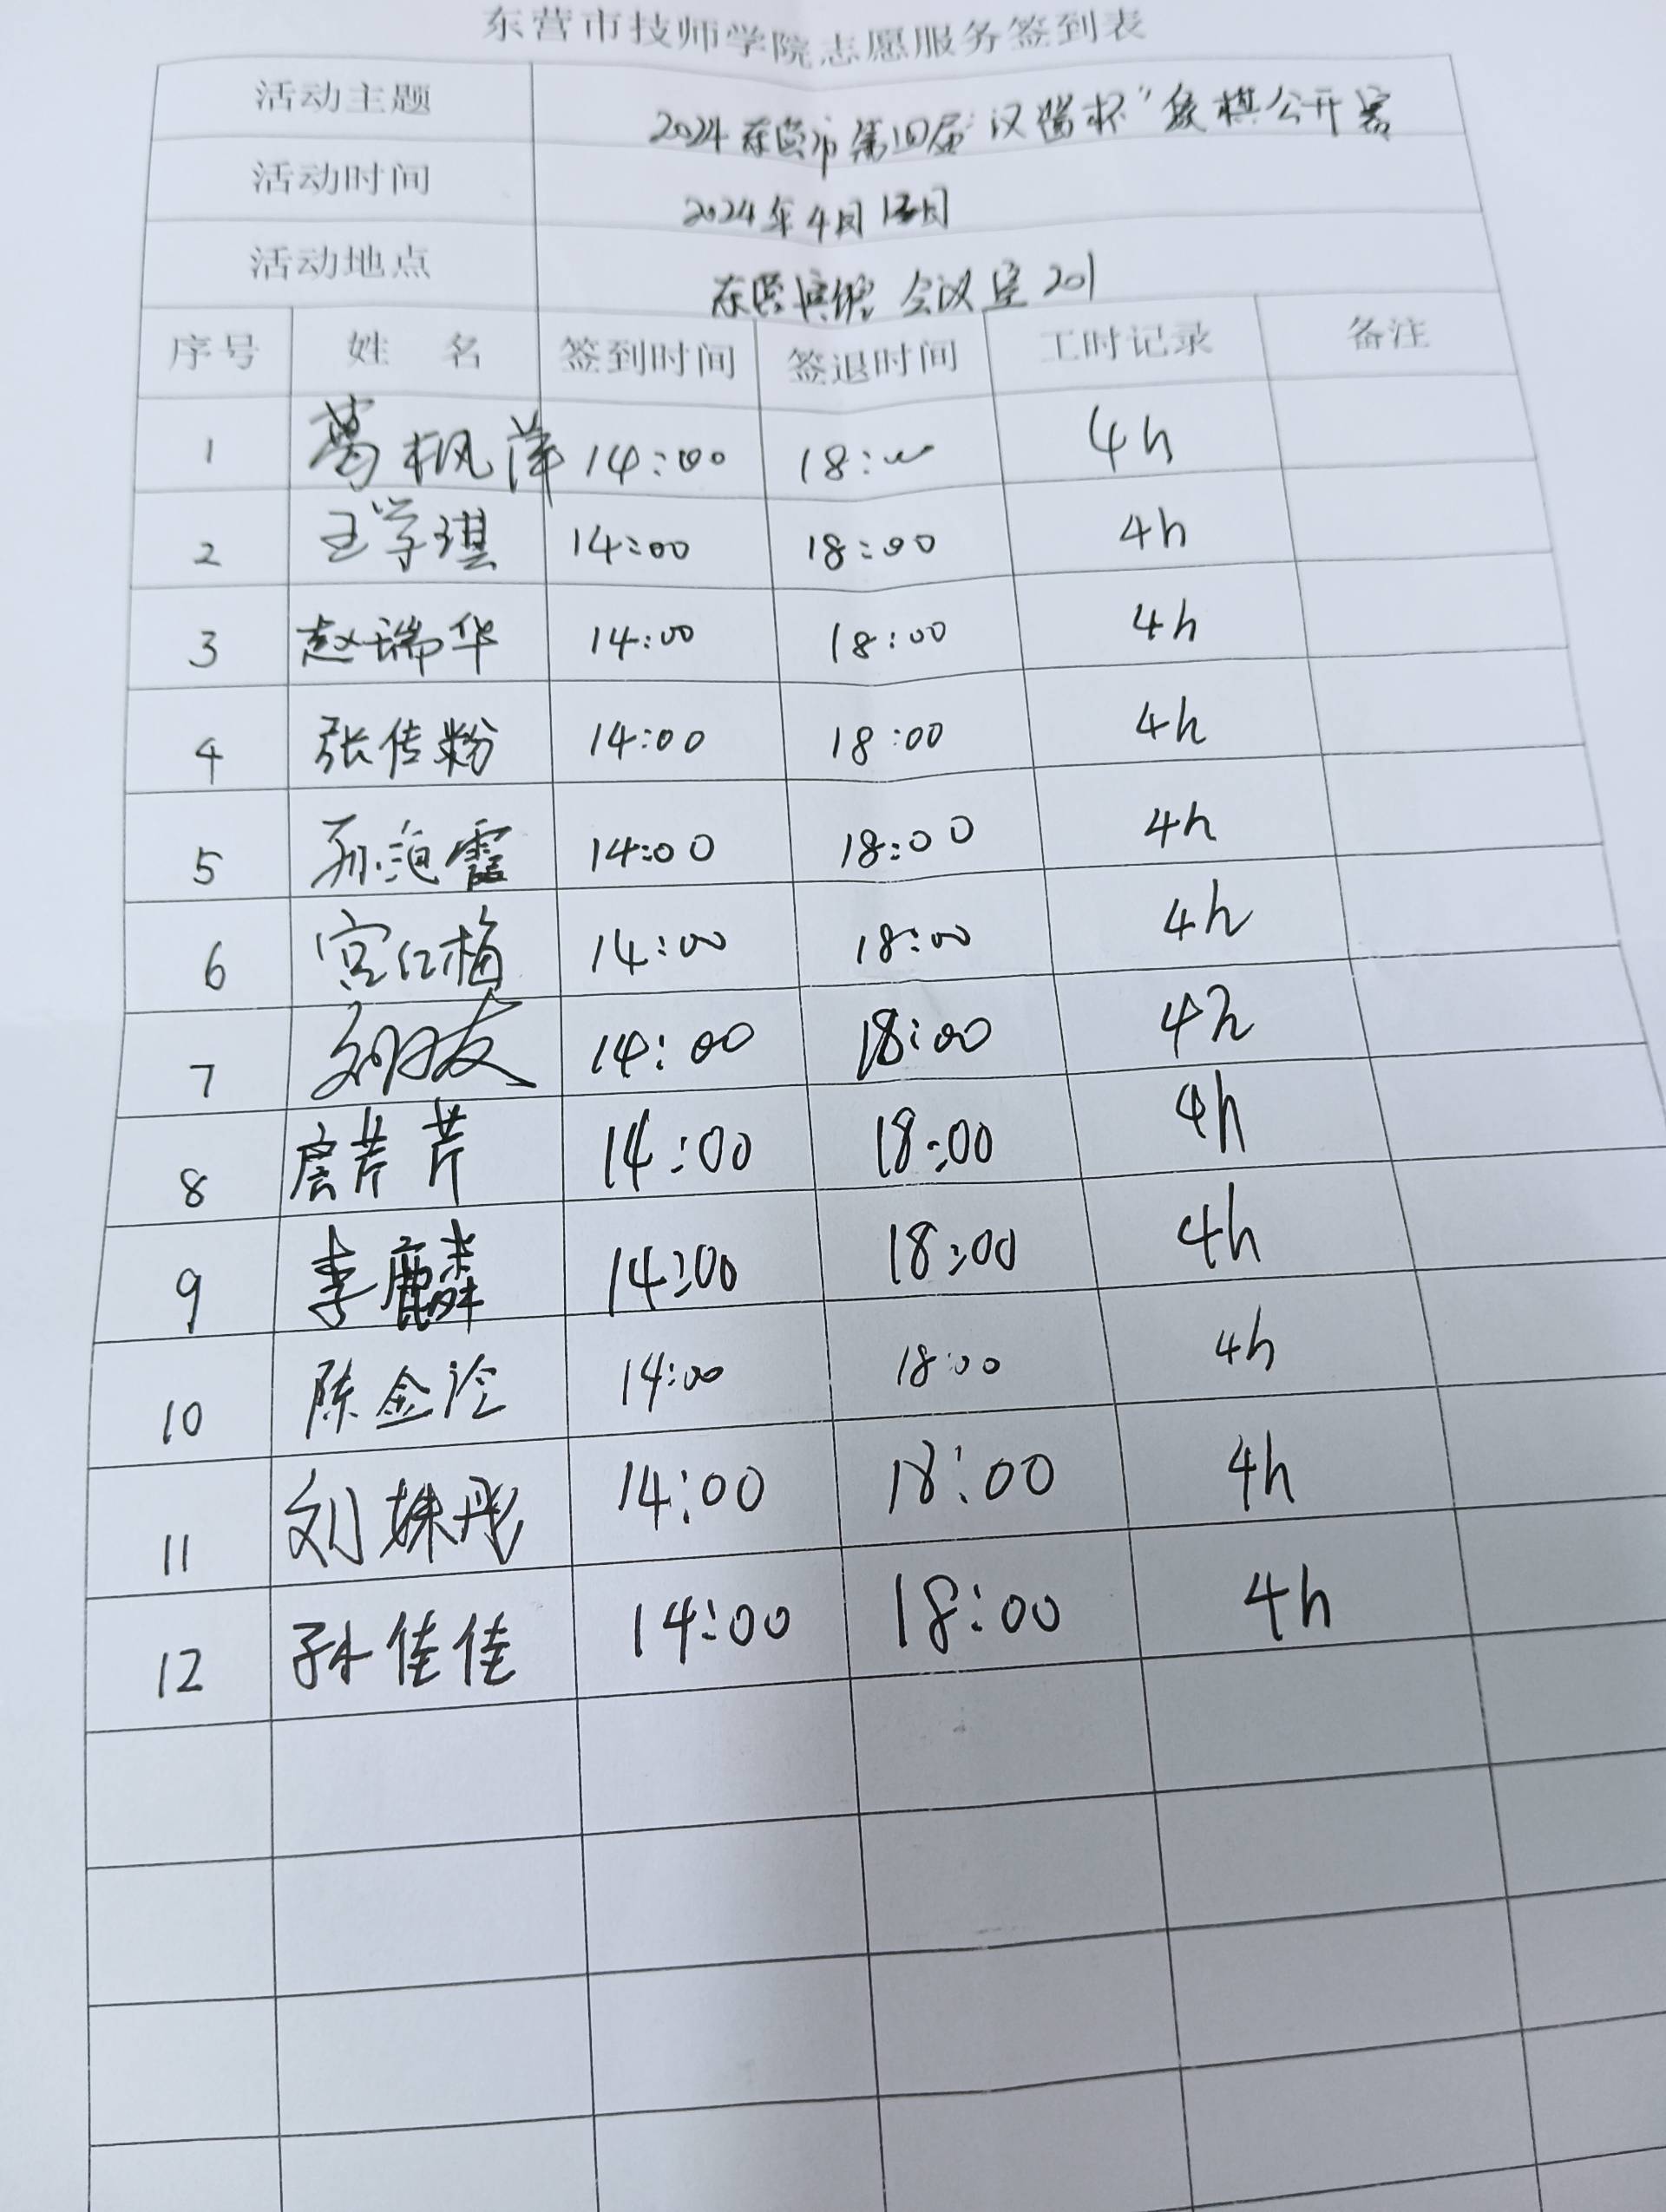 东营市技师学院志愿服务签到表
活动主题 2024东营市第四届“汉 杯”象棋公开赛
活动时间 2024年4月13日
活动地点 东营宾馆 会议室 201
序号 姓 名 签到时间 签退时间 工时记录 备注
1 葛枫萍 14:00 18:00 4h
2 王学琪 14:00 18:00 4h
3 赵瑞华 14:00 18:00 4h
4 张传粉 14:00 18:00 4h
5 孙 霞 14:00 18:00 4h
6 宫红梅 14:00 18:00 4h
7 14:00 18:00 4h
8 唐芹芹 14:00 18:00 4h
9 李麟 14:00 18:00 4h
10 陈金泠 14:00 18:00 4h
11 刘姝彤 14:00 18:00 4h
12 孙佳佳 14:00 18:00 4h